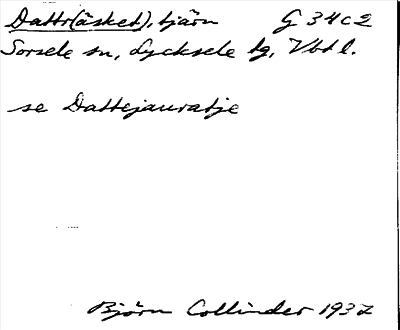 Dattr(äsket), tjärn G 34c2
Sorsele sn, Lycksele tg, Vbtl.
se Dattejauratje
Björn Collinder 1937